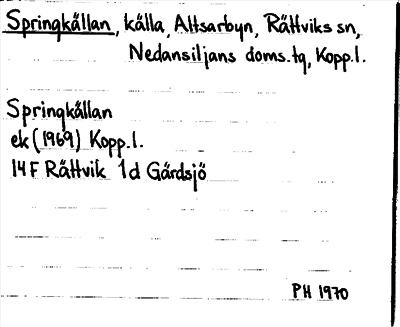 Springkällan, källa, Altsarbyn, Rättviks sn,
Nedansiljans doms.tg, Kopp.l.
Springkällan
ek (1969) Kopp.l.
14 F Rättvik 1d Gärdsjö
PH 1970